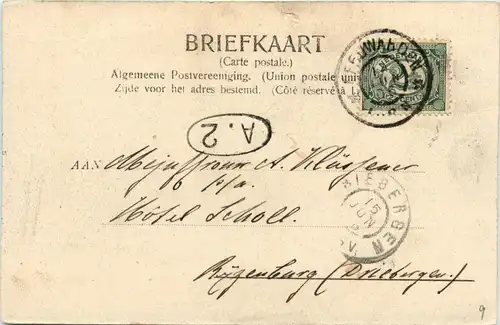 BRIEFKAART
(Carte postale.)
Algemeene Postvereeniging. (Union postale uni
Zijde voor het adres bestemd. (Côté réservé à l
A.2
AAN Mejuffrouw A.
p/a
Hôtel Scholl.
15
JUN
Rijzenburg (Driebergen.)
9